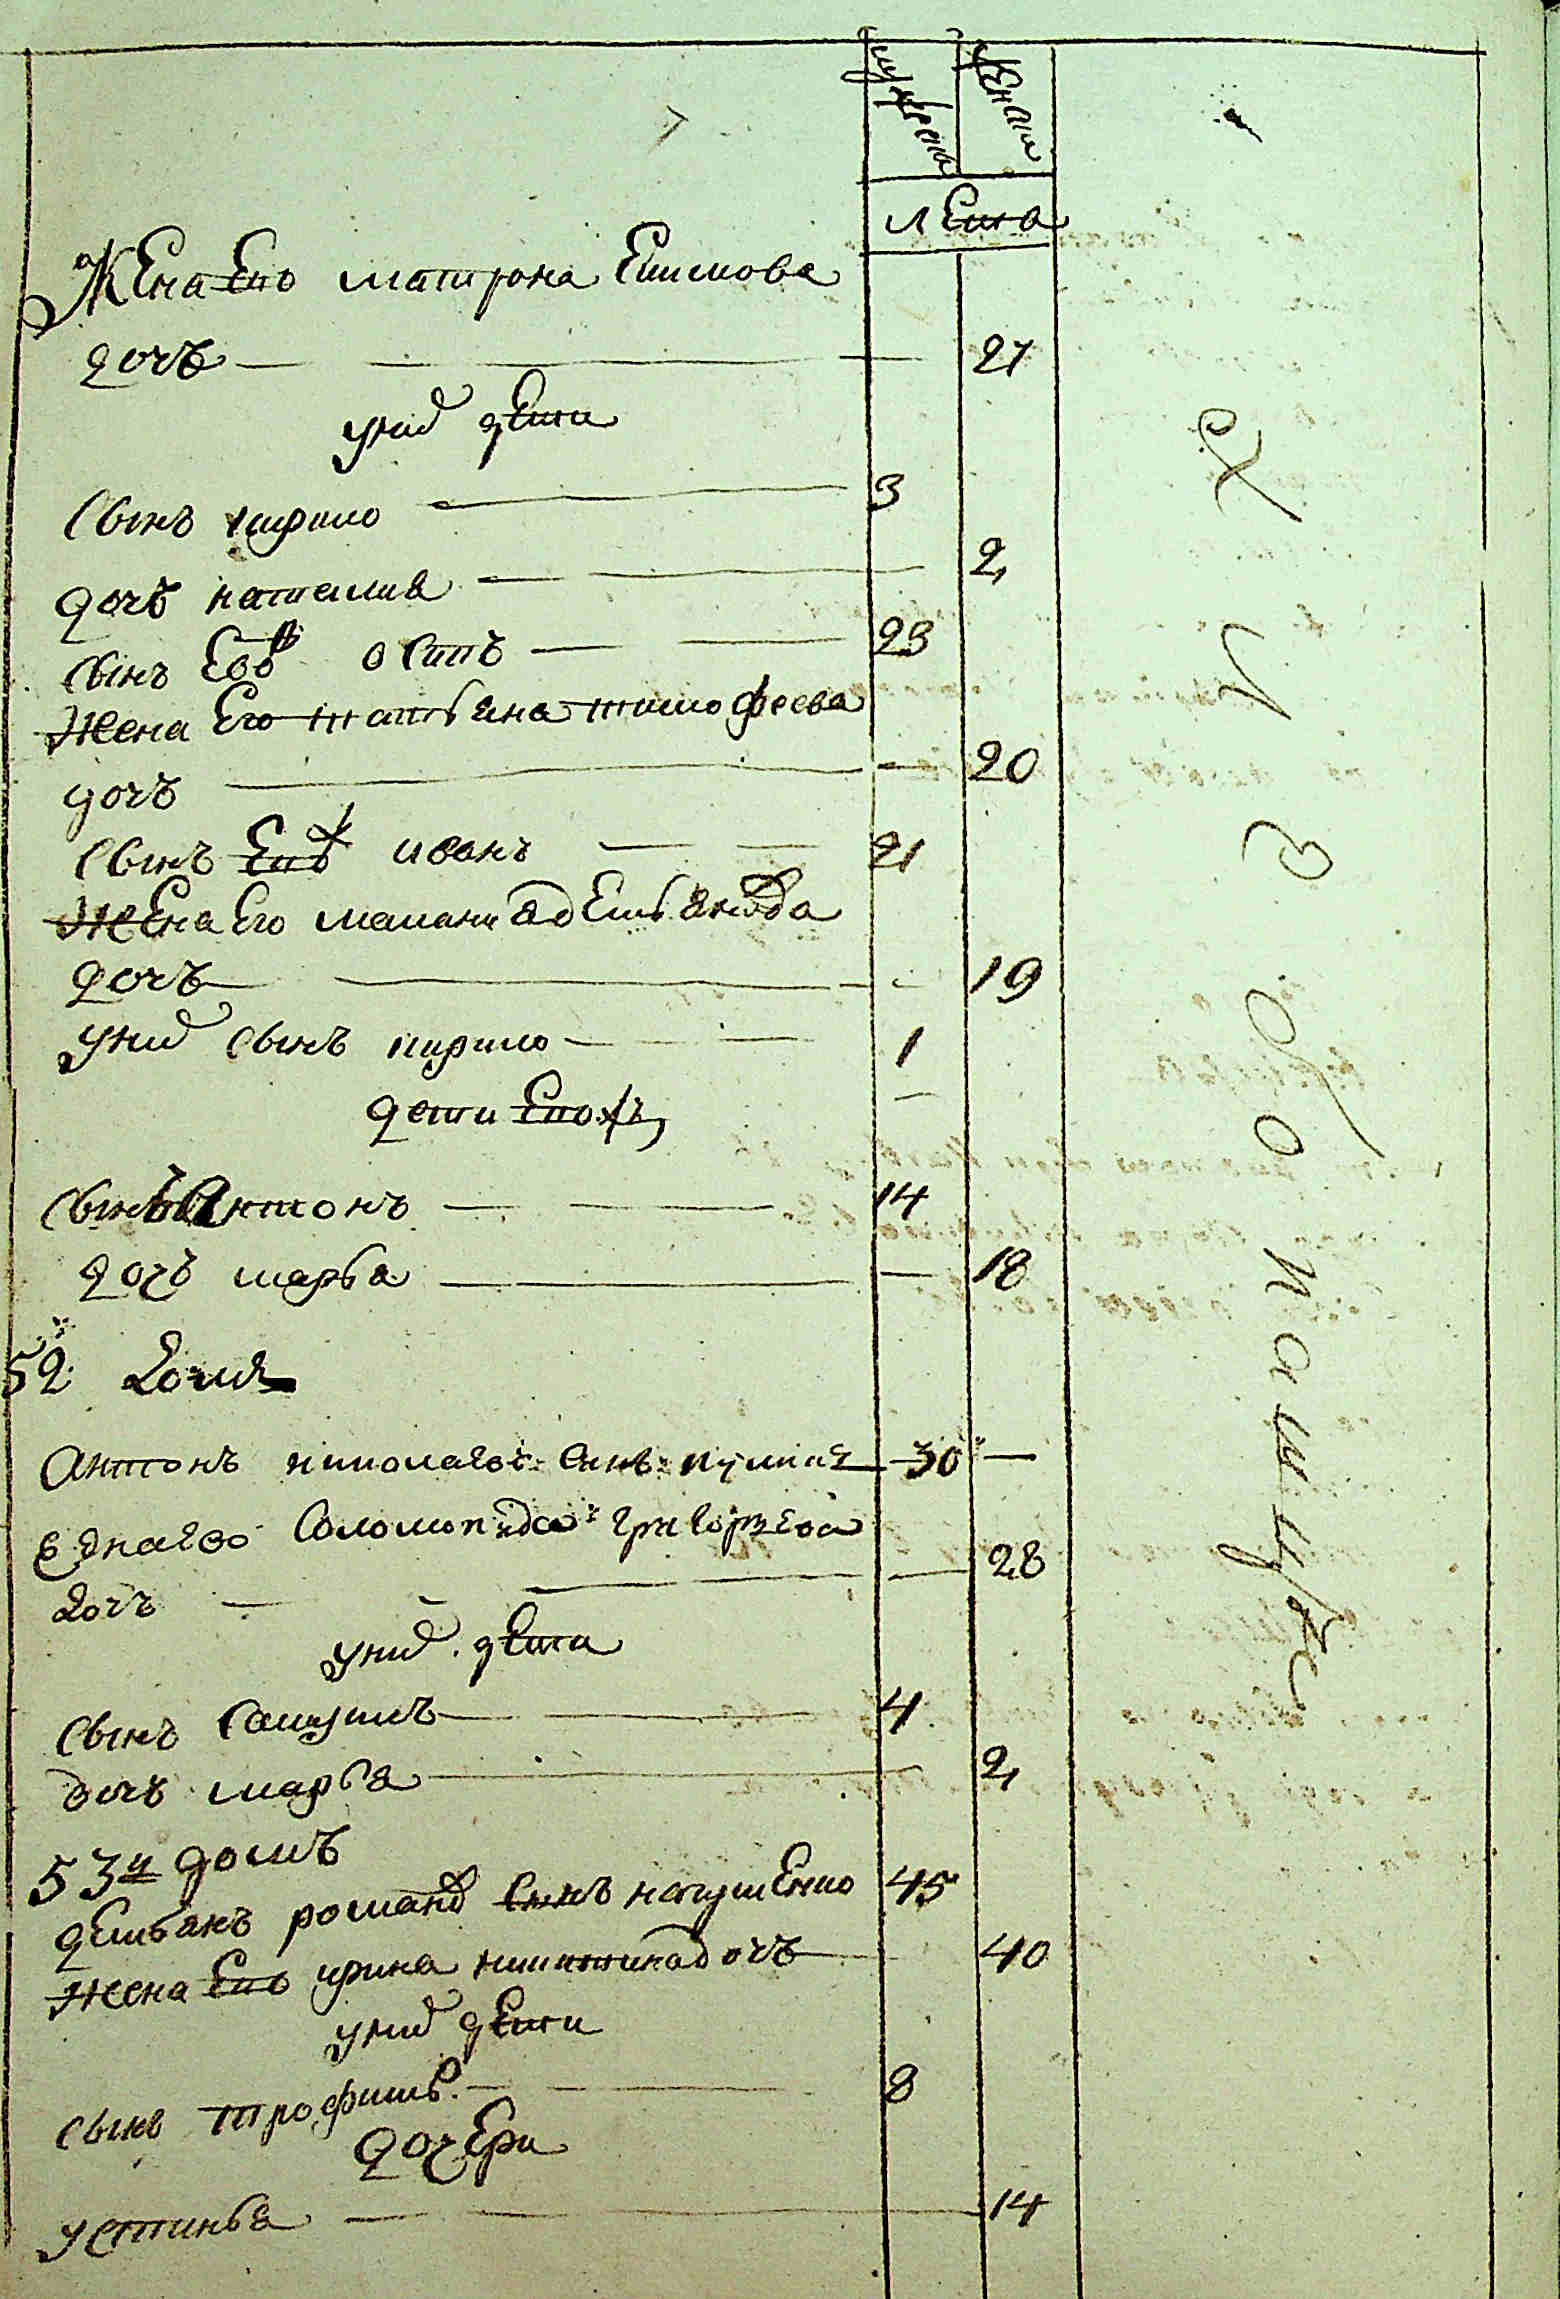 мужеска
женска
лета
Жена Его матрона Екимова
дочь 27
у них дети
Сынъ кирило 3
дочь наталия 2
сынъ Его осипъ 23
Жена Его татьяна тимофеева
дочь 20
Сынъ Его иванъ 21
Жена Его мелания демьянова
дочь 19
у них сынъ кирило 1
дети Его
Сынъ антонъ 14
дочь марья 18
52 домъ
Антонъ николаевъ сынъ 30
Жена его Соломонида григорьева
дочь 28
у них дети
Сынъ Самуилъ 4
дочь марья 2
53й домъ
демьянъ романов сынъ 45
Жена Его ирина никитина дочь 40
у них дети
сынъ трофимъ 8
дочери
устинья 14